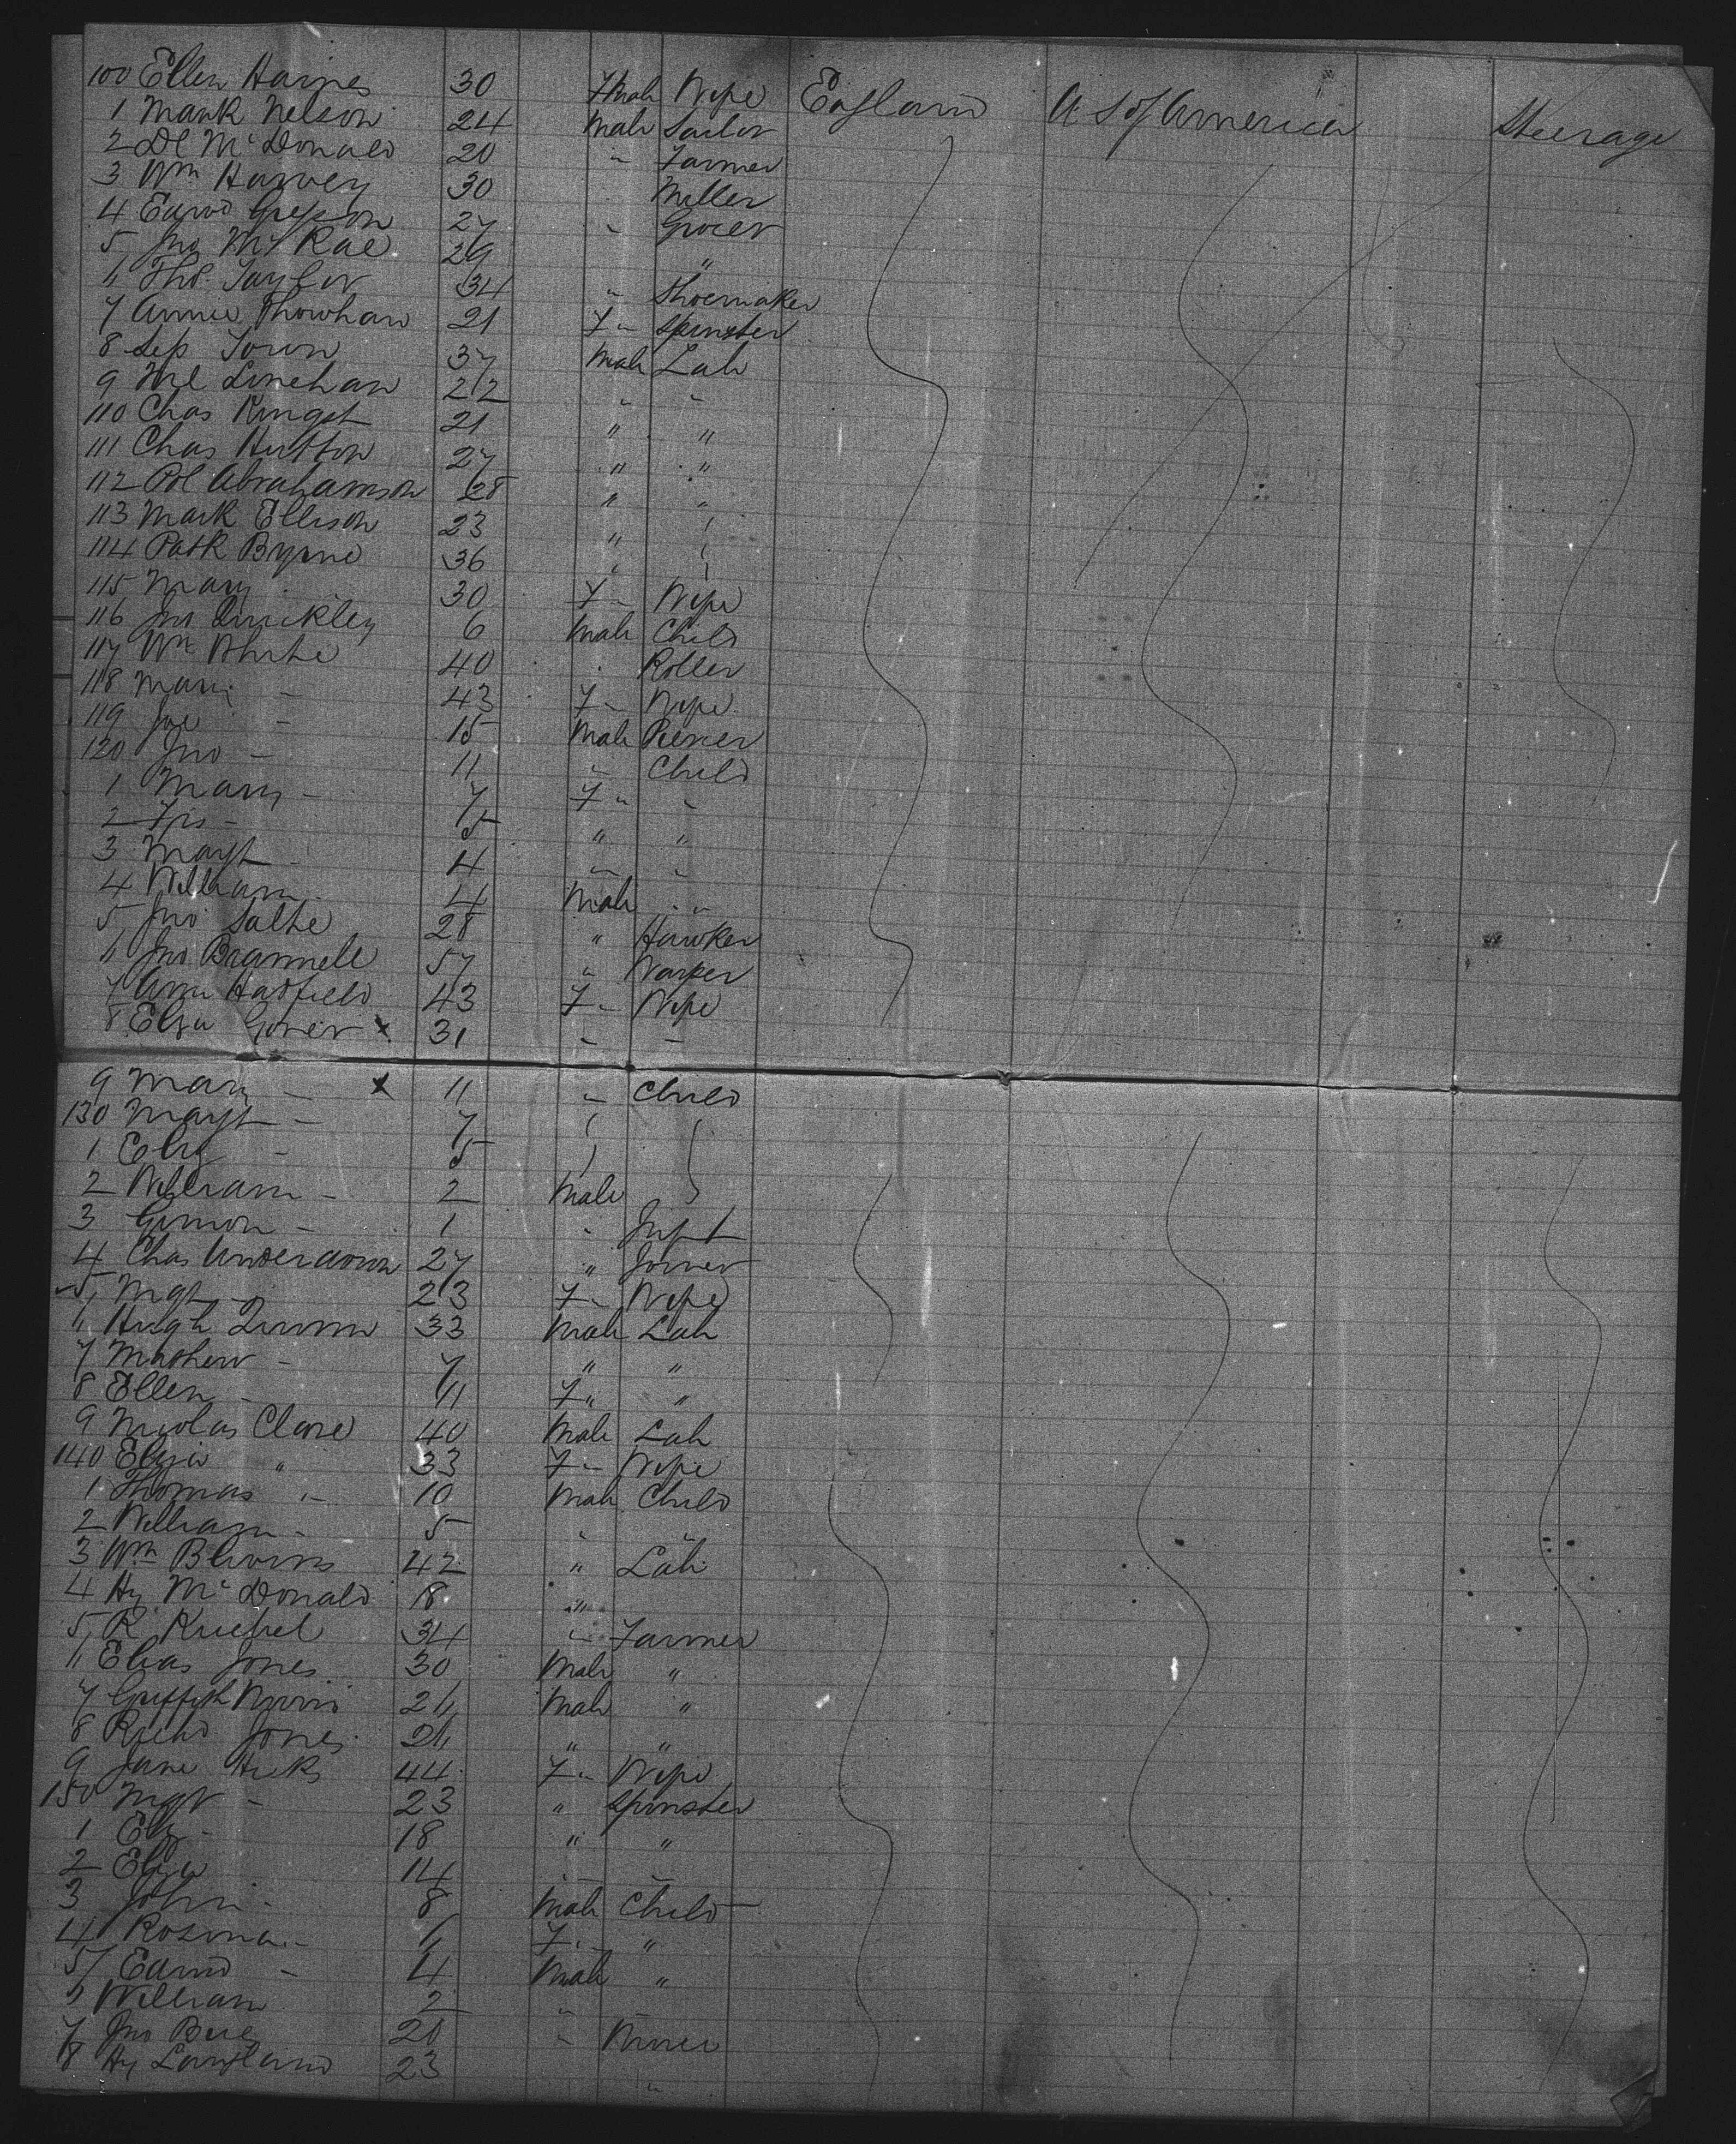 100 Ellen Haines 30 Fmale Wife England U S of America Steerage
1 Mark Nelson 24 Male Sailor
2 Dl McDonald 20 " Farmer
3 Wm Harvey 30 " Miller
4 Edwd Greyson 27 " Grocer
5 Jno McRae 29 "
6 Thos Taylor 34 " Shoemaker
7 Annie 21 F " Spinster
8 Sep Town 37 Male Lab
9 Ml Linehan 22 " "
110 Chas Kingst 21 " "
111 Chas Hutton 27 " "
112 Pol Abrahamson 28 " "
113 Mark Ellison 23 "
114 Patk Byrne 36 "
115 Mary 30 F " Wife
116 Jno Quickley 6 Male Child
117 Wm White 40 " Roller
118 Mary - 43 F " Wife
119 Joe - 15 Male Piecer
120 Jno - 11 " Child
1 Mary - 7 F " "
2 Frs - 5 " "
3 Mayt - 4 " "
4 William 4 Male " "
5 Jno Salte 28 " Hawker
6 Jno Brammell 57 " Warper
7 Ann Hadfield 43 F " Wife
8 Elza Gorer x 31 " "
9 Mary - x 11 " Child
130 Mayt - 7
1 Eliz - 5
2 William - 2 Male
3 - 1 " Inft
4 Chas Underdown 27 " Joiner
5 Mgt - 23 F " Wife
6 Hugh Quinn 33 Male Lab
7 Mathew - 7 " "
8 Ellen - 11 F " "
9 Nicolas Clare 40 Male Lab
140 Eliza " 33 F " Wife
1 Thomas " 10 Male Child
2 William - 5 " "
3 Wm Blivins 42 " Lab
4 Hy McDonald 18 "
5 R Kriebel 34 " Farmer
6 Elias Jones 30 Male "
7 Griffith Morris 26 Male "
8 Richd Jones 26 " "
9 Jane Hicks 44 F " Wife
150 Mgt - 23 " Spinster
1 Eliz - 18 " "
2 Eliza 14 " "
3 John - 8 Male Child
4 Rosina - 6 F " "
5 Edwd - 4 Male "
6 William 2 "
7 Jno 20 " Miner
8 Hy Langland 23 "